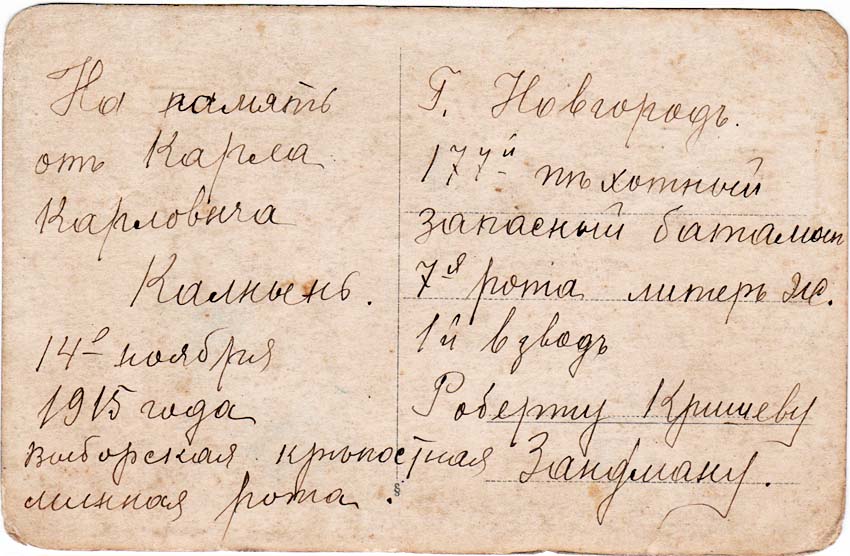 На память
отъ Карла
Карловича
Калнынь.
14го ноября
1915 года
Выборская крѣпостная
минная рота.
Г. Новгородъ.
177й пѣхотный
запасный батальон
7я рота литеръ Ж.
1й взводъ
Роберту
Зандману.